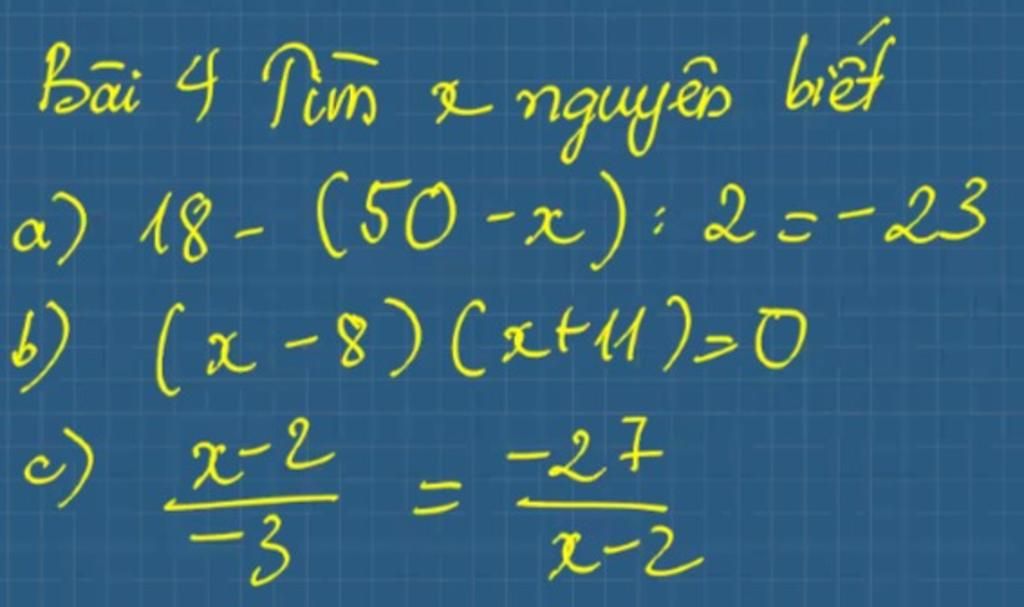 Bài 4 Tìm x nguyên biết
a) 18 - (50 - x) : 2 = - 23
b) (x - 8) (x + 11) = 0
c) \frac{x-2}{-3} = \frac{-27}{x-2}